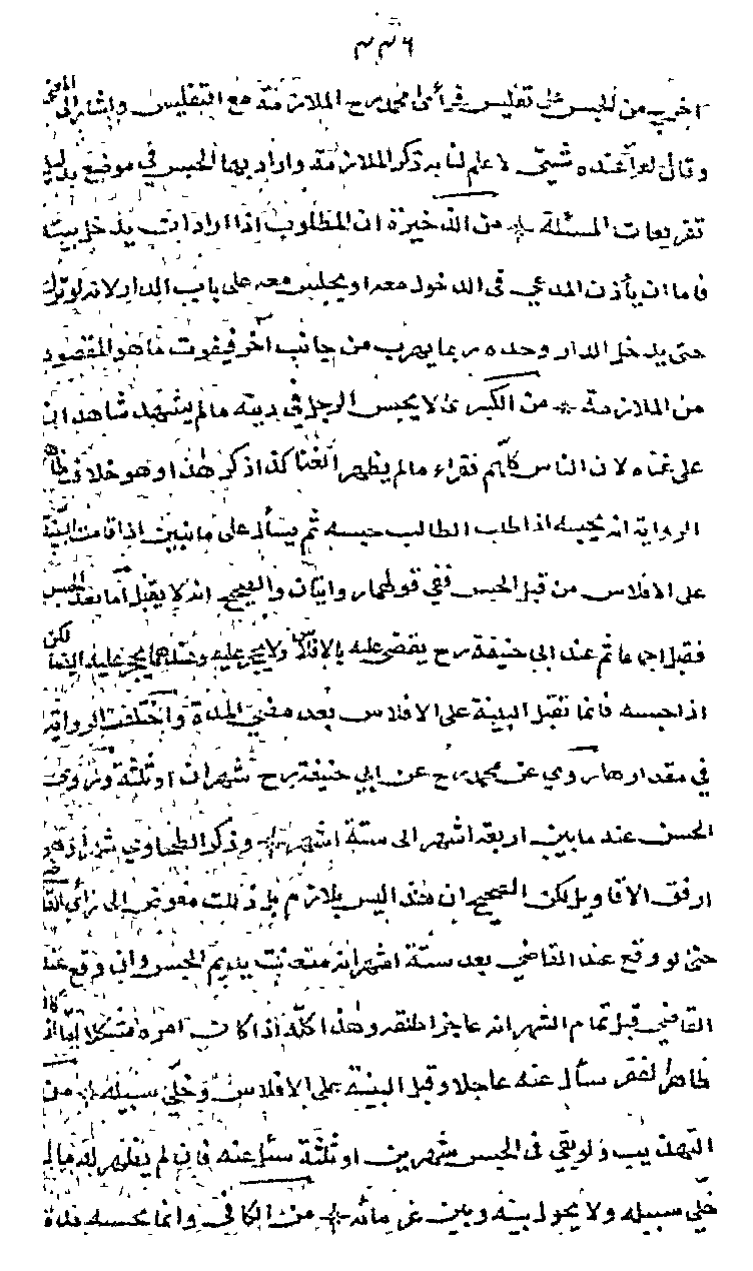 ٣٣٦
اخرى من ليس على تفليس فرأى محمد رح الملازمة مع التفليس واشار الى المعنى
وقال لعل عنده شيئ لا علم لنا به ذكر الملازمة واراد بها الحبس في موضع يدل
تفريعات المسئلة * من الذخيرة ان المطلوب اذا اراد ان يدخل بيته
فاما ان يأذن المدعي في الدخول معه او يجلس معه على باب الدار لانه لو ترك
حتى يدخل الدار وحده ربما يهرب من جانب آخر فيفوت ما هو المقصود
من الملازمة * من الكبرى لا يحبس الرجل في دينه مالم يشهد شاهدان
على غناه لان الناس كلهم فقراء مالم يظهر الغنا كذا ذكر هذا وهو خلاف ظاهر
الرواية انه يحبسه اذا طلب الطالب حبسه ثم يسأل على ما نبين اذا قامت البينة
على الافلاس من قبل الحبس ففي قولهما روايتان والصحيح انه لا يقبل اما بعد الحبس
فقبل اجماعا ثم عند ابى حنيفة رح يقضى عليه بالافلاس ولا يحجر عليه وعندهما يحجر عليه لكن
اذا حبسه فانما تقبل البينة على الافلاس بعد مضي المدة واختلفت الرواية
في مقدارها روي عن محمد رح عن ابي حنيفة رح شهران او ثلثة وروى
الحسن عنه ما بين اربعة اشهر الى ستة اشهر * وذكر الطحاوي شهرا وهو
ارفق الاقاويل لكن الصحيح ان هذا ليس بلازم بل ذلك مفوض الى رأي القاضي
حتى لو وقع عند القاضي بعد ستة اشهر انه متعنت يديم الحبس وان وقع عند
القاضي قبل تمام الشهر انه عاجز اطلقه وهذا كله اذا كان امره مشكلا اما اذا كان
ظاهر الفقر سأل عنه عاجلا وقبل البينة على الافلاس وخلى سبيله * من
التهذيب ولو بقي في الحبس شهرين او ثلثة سأل عنه فان لم يظهر له مال
خلى سبيله ولا يحول بينه وبين غرمائه * من الكافي وانما يحبسه مدة